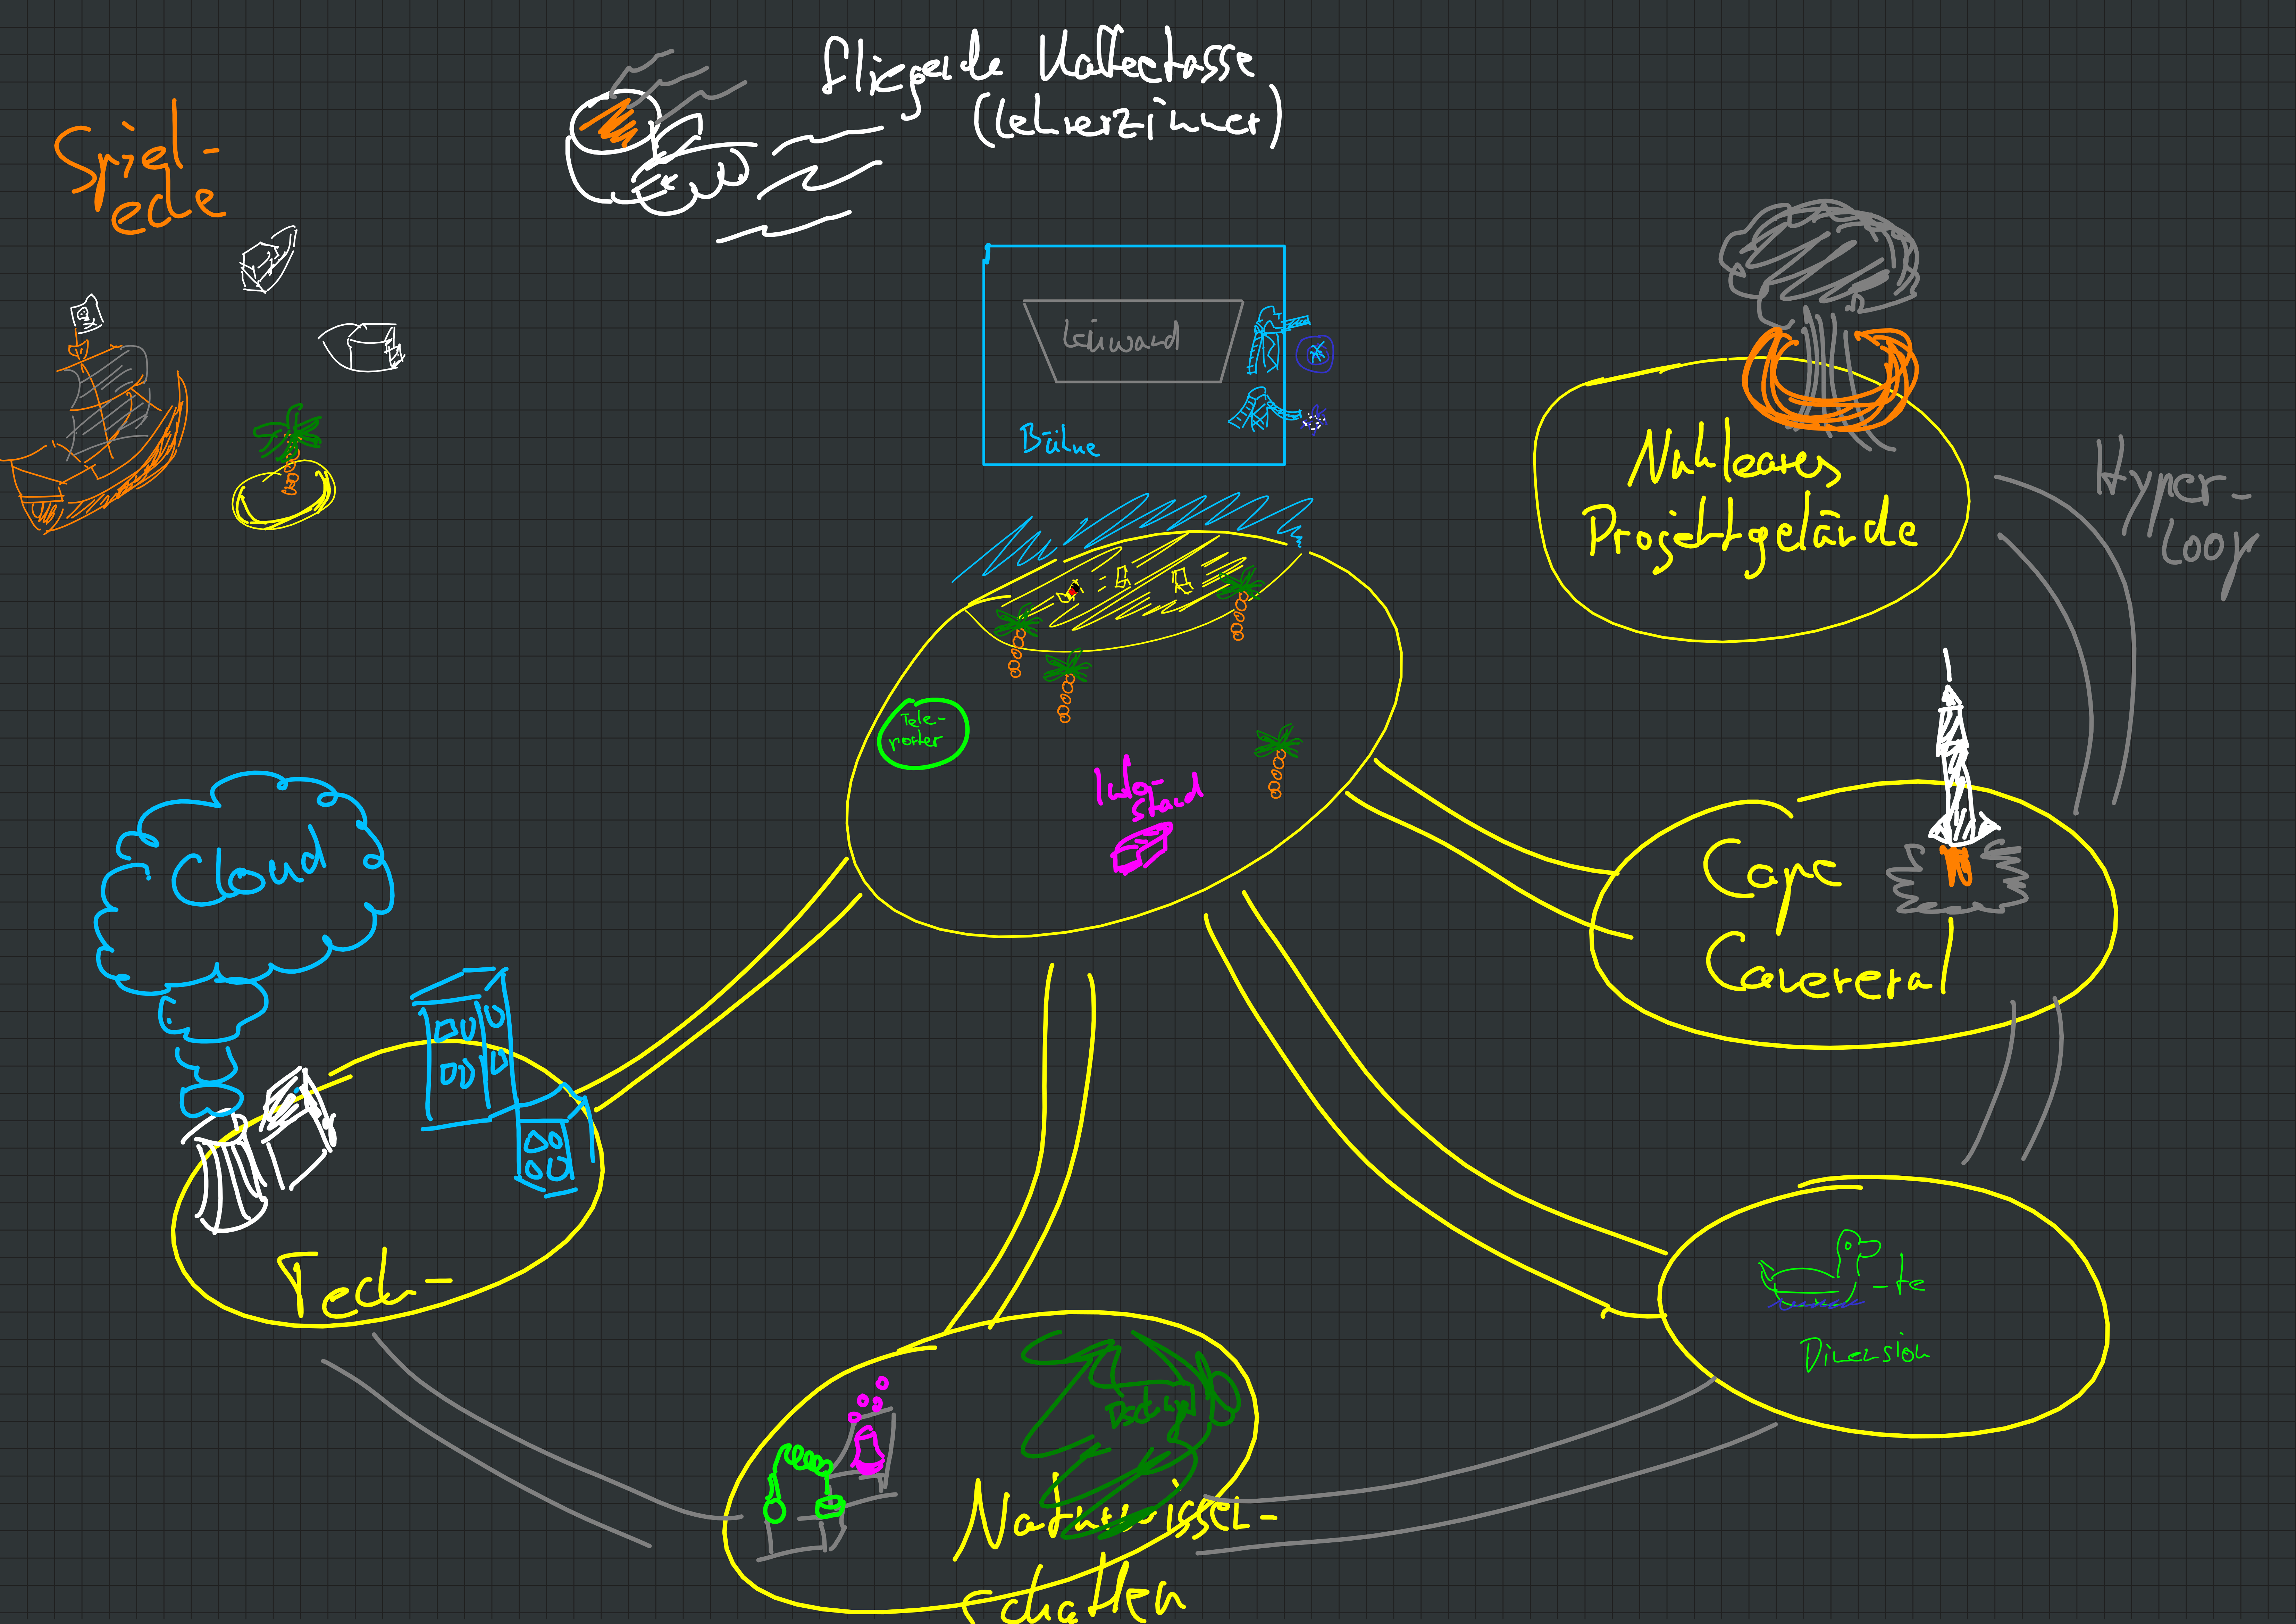 fliegende Kaffeetasse
(Lehrerzimmer)
Spiel-
ecke
Leinwand
Bühne
Nukleares
Projektgelände
Hyper-
Loop
Tele-
porter
Info-
stand
Cloud
Cape
Caverera
Tech-
-te
Dimension
Naturwissen-
schaften